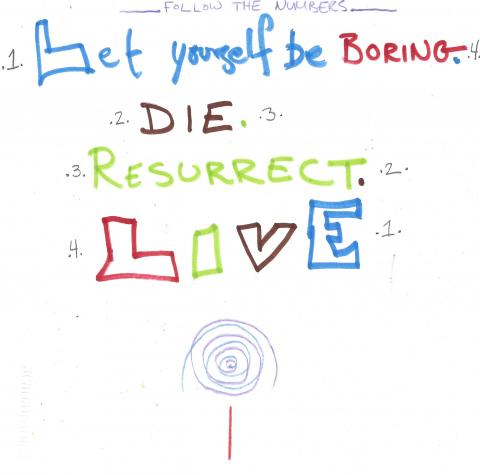 FOLLOW THE NUMBERS
.1. Let yourself be BORING. .4.
.2. DIE. .3.
.3. RESURRECT. .2.
.4. LIVE .1.